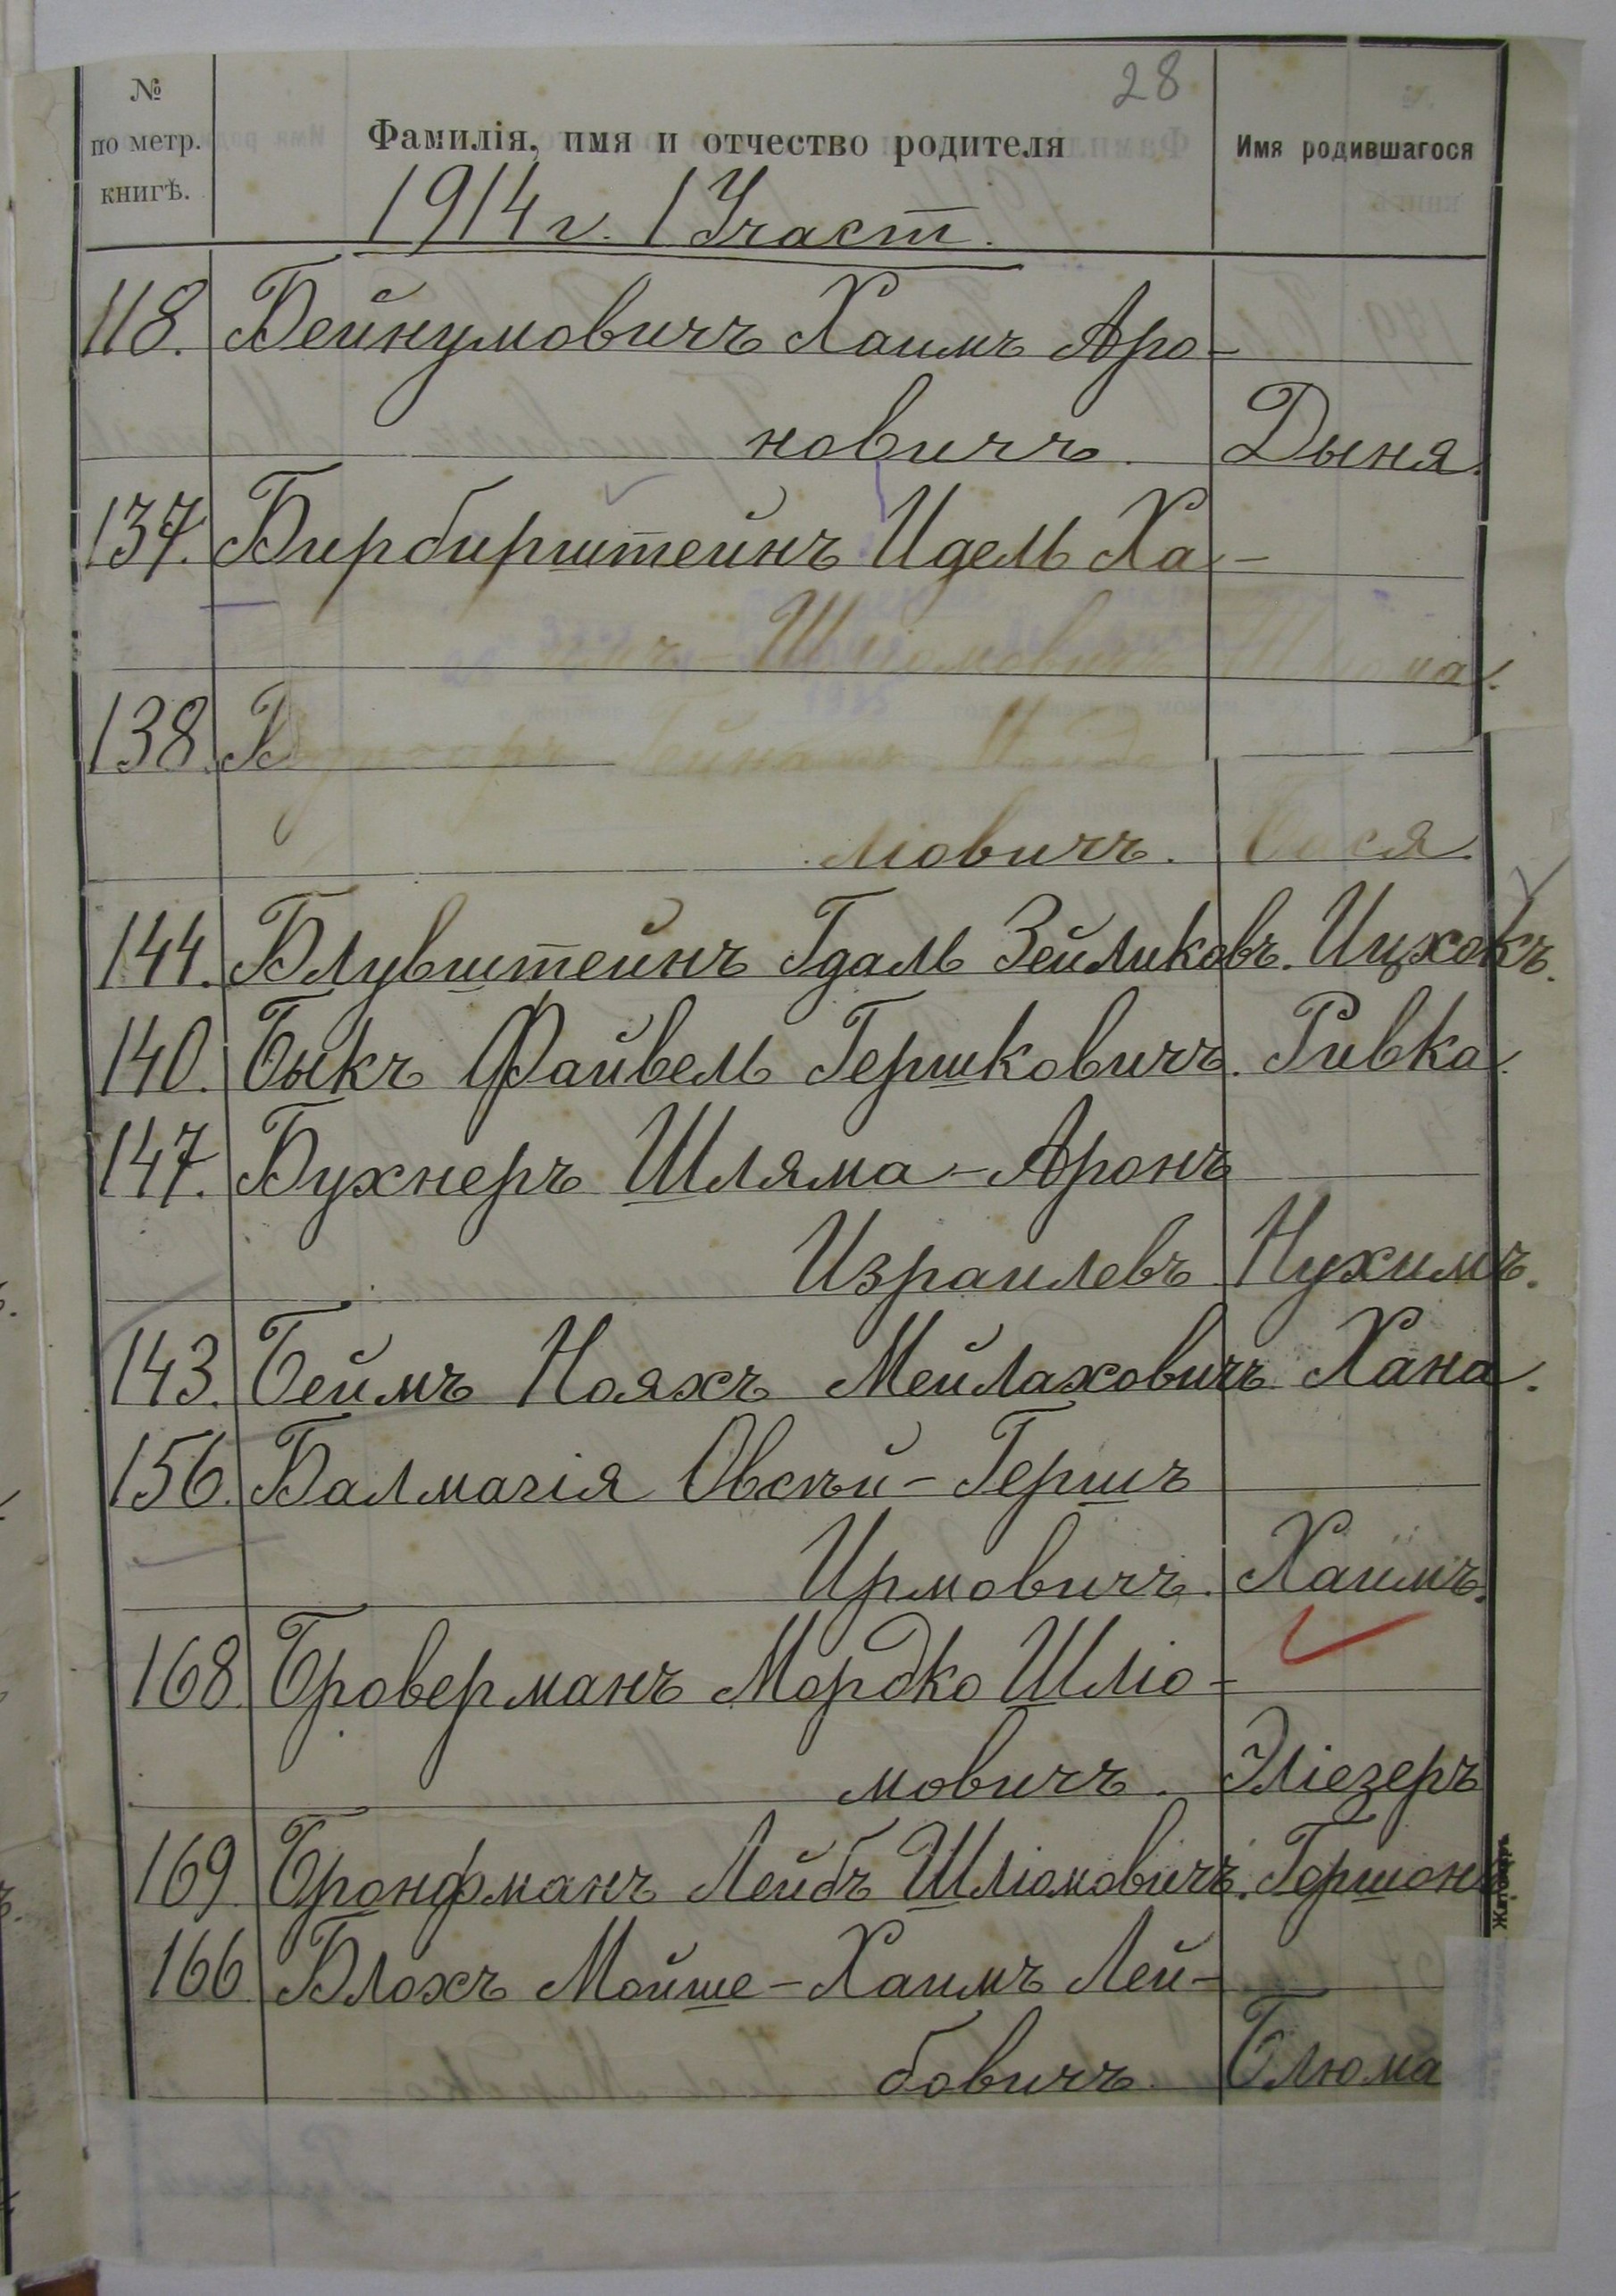 28
№ по метр. книгѣ.
Фамилія, имя и отчество родителя
Имя родившагося
1914 г. 1 Участ.
118. Бейнумовичъ Хаимъ Аро-
новичъ. Дыня.
137. Бирбирштейнъ Идель Ха-
Шліомовичъ
138. Мендe
ліовичъ. Бася.
144. Блувштейнъ Гдаль Зейликовъ. Ицхокъ.
140. Быкъ Файвель Гершковичъ. Ривка.
147. Бухнеръ Шляма-Аронъ
Израилевъ Нухимъ.
143. Беймъ Нояхъ Мейлаховичъ Хана.
156. Балмагія Овсѣй-Гершъ
Ирмовичъ. Хаимъ.
168. Броверманъ Мордко Шліо-
мовичъ. Эліезеръ
169 Бронфманъ Лейбъ Шліомовичъ. Гершонъ
166 Блохъ Мойше-Хаимъ Лей-
бовичъ. Блюма